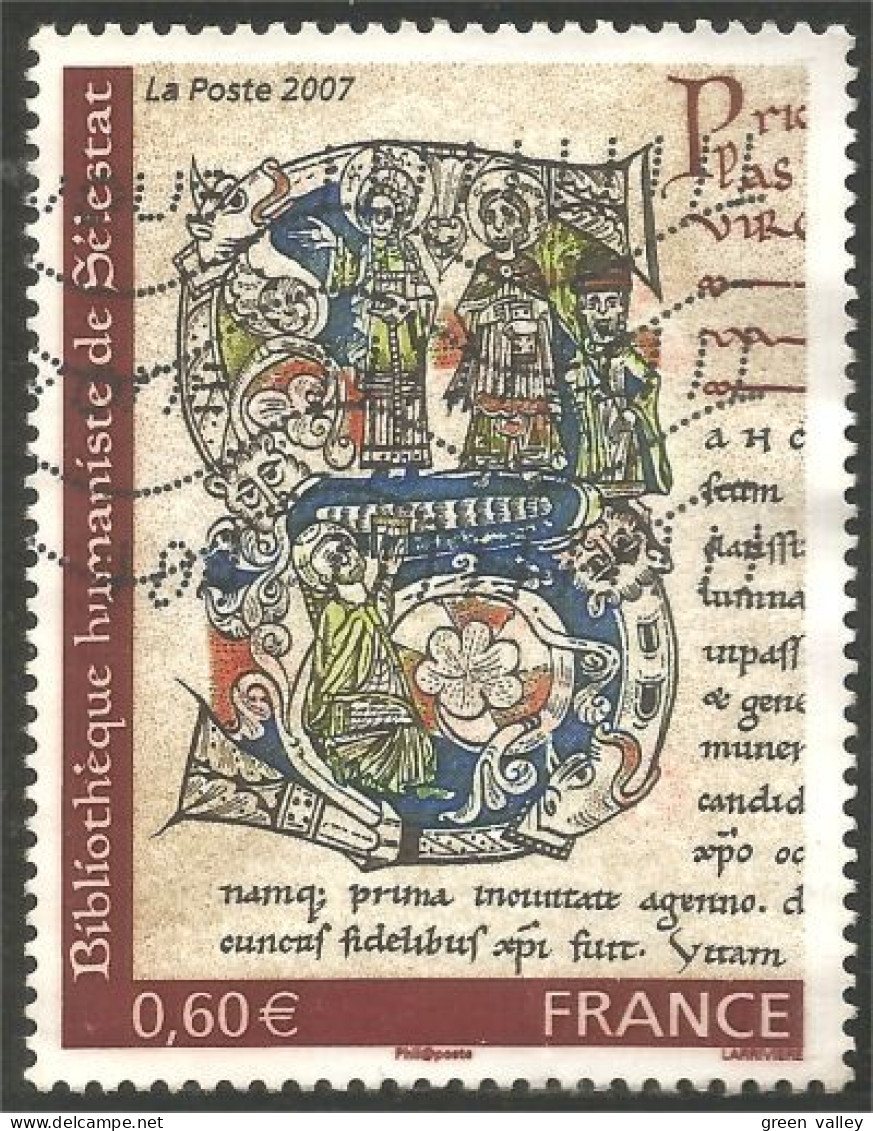 La Poste 2007
Bibliothèque humaniste de Sélestat
Pric
las
VIRG
AHC
scam
clarissi
lumina
inpass
& gene
muner
candid
xp̄o oc
namq; prima inoiuitate agenno. d
cunctis fidelibus xp̄i fuit. Vitam
0,60€ FRANCE
Phil@poste LARRIVIERE
green_valley